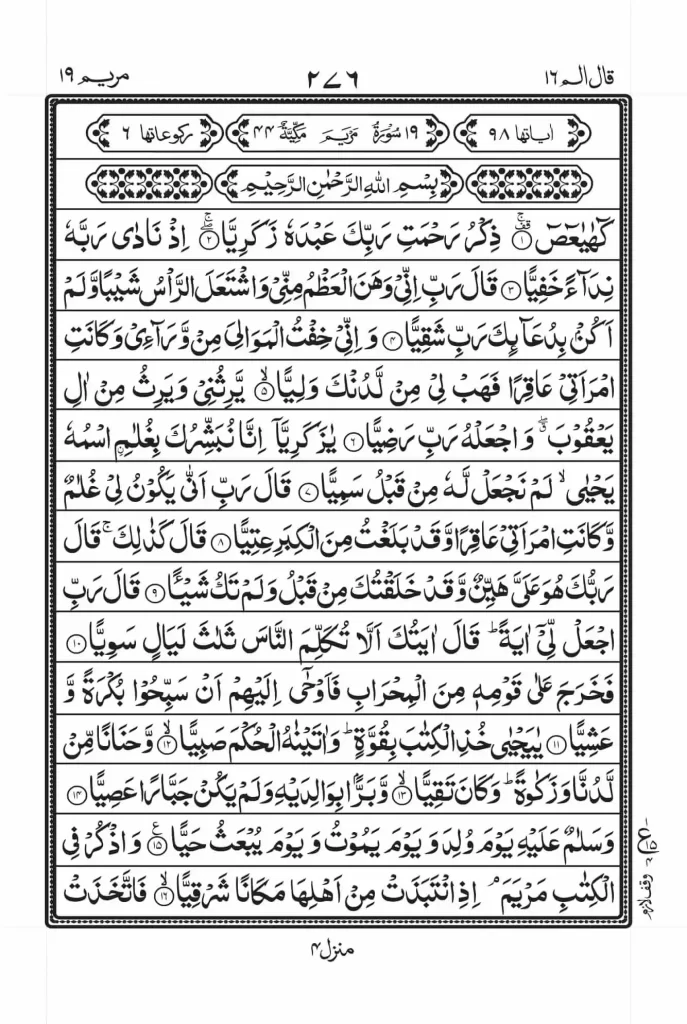 قال الم ١٦ ٢٧٦ مريم ١٩
اٰیاتھا ٩٨ ١٩ سُوۡرَةُ مَرۡیَمَ مَکِّیَّةٌ ٤٤ رکوعاتھا ٦
بِسۡمِ اللهِ الرَّحۡمٰنِ الرَّحِیۡمِ
کٓهٰیٰعٓصٓ ۟ۚ﴿١﴾ ذِکۡرُ رَحۡمَتِ رَبِّكَ عَبۡدَہٗ زَکَرِیَّا ۖۚ﴿٢﴾ اِذۡ نَادٰی رَبَّهٗ
نِدَآءً خَفِیًّا ﴿٣﴾ قَالَ رَبِّ اِنِّیۡ وَهَنَ الۡعَظۡمُ مِنِّیۡ وَاشۡتَعَلَ الرَّاۡسُ شَیۡبًا وَّلَمۡ
اَکُنۡۢ بِدُعَآئِكَ رَبِّ شَقِیًّا ﴿٤﴾ وَ اِنِّیۡ خِفۡتُ الۡمَوَالِیَ مِنۡ وَّرَآءِیۡ وَ کَانَتِ
امۡرَاَتِیۡ عَاقِرًا فَهَبۡ لِیۡ مِنۡ لَّدُنۡكَ وَلِیًّا ۙ﴿٥﴾ یَّرِثُنِیۡ وَیَرِثُ مِنۡ اٰلِ
یَعۡقُوۡبَ ٭ۖ وَ اجۡعَلۡهُ رَبِّ رَضِیًّا ﴿٦﴾ یٰزَکَرِیَّاۤ اِنَّا نُبَشِّرُكَ بِغُلٰمِۣ اسۡمُهٗ
یَحۡیٰی ۙ لَمۡ نَجۡعَلۡ لَّهٗ مِنۡ قَبۡلُ سَمِیًّا ﴿٧﴾ قَالَ رَبِّ اَنّٰی یَکُوۡنُ لِیۡ غُلٰمٌ
وَّکَانَتِ امۡرَاَتِیۡ عَاقِرًا وَّقَدۡ بَلَغۡتُ مِنَ الۡکِبَرِ عِتِیًّا ﴿٨﴾ قَالَ کَذٰلِكَ ۚ قَالَ
رَبُّكَ هُوَ عَلَیَّ هَیِّنٌ وَّقَدۡ خَلَقۡتُكَ مِنۡ قَبۡلُ وَلَمۡ تَكُ شَیۡـًٔا ﴿٩﴾ قَالَ رَبِّ
اجۡعَلۡ لِّیۡۤ اٰیَةً ؕ قَالَ اٰیَتُكَ اَلَّا تُکَلِّمَ النَّاسَ ثَلٰثَ لَیَالٍ سَوِیًّا ﴿١٠﴾
فَخَرَجَ عَلٰی قَوۡمِهٖ مِنَ الۡمِحۡرَابِ فَاَوۡحٰۤی اِلَیۡهِمۡ اَنۡ سَبِّحُوۡا بُکۡرَةً وَّ
عَشِیًّا ﴿١١﴾ یٰیَحۡیٰی خُذِ الۡکِتٰبَ بِقُوَّةٍ ؕ وَاٰتَیۡنٰهُ الۡحُکۡمَ صَبِیًّا ۙ﴿١٢﴾ وَّحَنَانًا مِّنۡ
لَّدُنَّا وَزَکٰوةً ؕ وَکَانَ تَقِیًّا ۙ﴿١٣﴾ وَّبَرًّۢا بِوَالِدَیۡهِ وَلَمۡ یَکُنۡ جَبَّارًا عَصِیًّا ﴿١٤﴾
وَسَلٰمٌ عَلَیۡهِ یَوۡمَ وُلِدَ وَ یَوۡمَ یَمُوۡتُ وَ یَوۡمَ یُبۡعَثُ حَیًّا ﴿١٥﴾ع وَ اذۡکُرۡ فِی
الۡکِتٰبِ مَرۡیَمَ ۘ اِذِ انۡتَبَذَتۡ مِنۡ اَهۡلِهَا مَکَانًا شَرۡقِیًّا ۙ﴿١٦﴾ فَاتَّخَذَتۡ
وقف لازم
منزل ٤